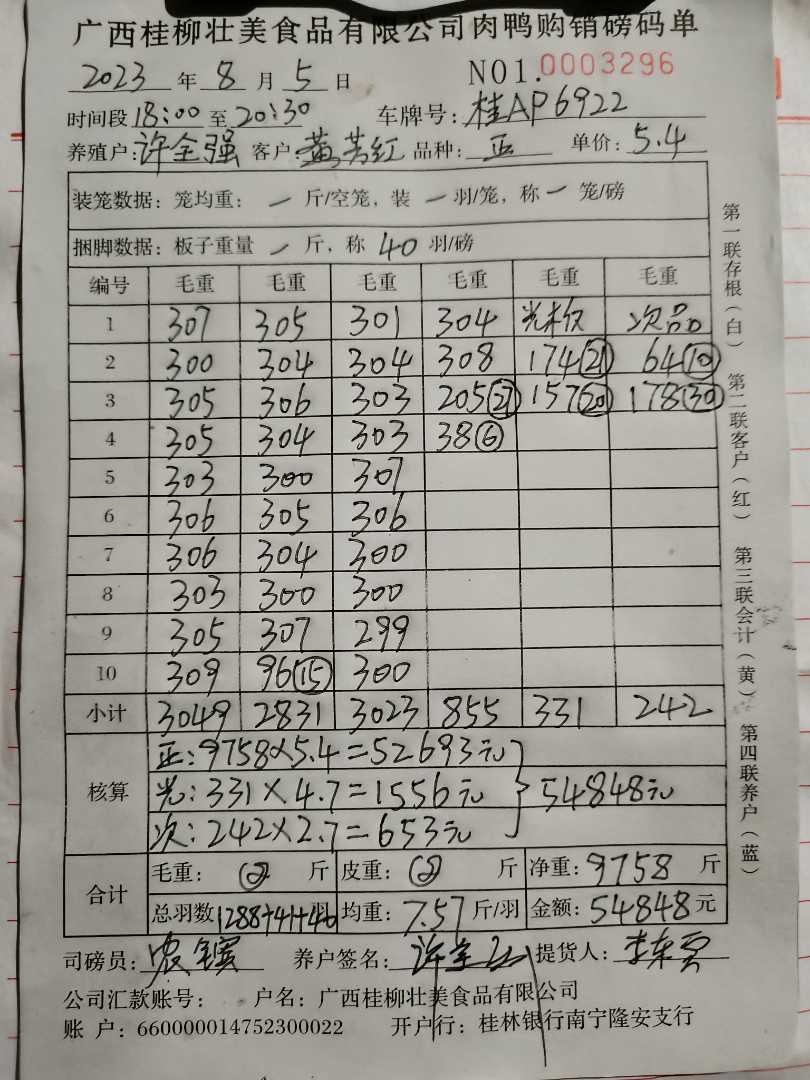 广西桂柳壮美食品有限公司肉鸭购销磅码单
2023 年 8 月 5 日 NO1.0003296
时间段 18:00 至 20:30 车牌号: 桂AP6922
养殖户: 许全强 客户: 黄芳红 品种: 正 单价: 5.4
装笼数据: 笼均重: 一 斤/空笼, 装 一 羽/笼, 称 一 笼/磅
捆脚数据: 板子重量 一 斤, 称 40 羽/磅
编号 毛重 毛重 毛重 毛重 毛重 毛重
1 307 305 301 304 光木仅 次品
2 300 304 304 308 174(21) 64(10)
3 305 306 303 205(27) 157(20) 178(30)
4 305 304 303 38(6)
5 303 300 307
6 306 305 306
7 306 304 300
8 303 300 300
9 305 307 299
10 309 96(15) 300
小计 3049 2831 3023 855 331 242
核算
正: 9758×5.4=52693元
光: 331×4.7=1556元 } 54848元
次: 242×2.7=653元
合计
毛重: 斤 皮重: 斤 净重: 9758 斤
总羽数 1288+41+40 羽 均重: 7.57 斤/羽 金额: 54848 元
司磅员: 养户签名: 许全 提货人: 李
公司汇款账号: 户名: 广西桂柳壮美食品有限公司
账 户: 660000014752300022 开户行: 桂林银行南宁隆安支行
第一联存根(白) 第二联客户(红) 第三联会计(黄) 第四联养户(蓝)